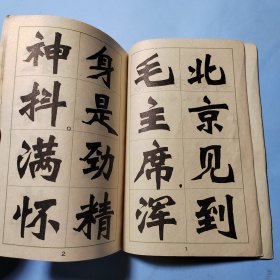 北京见到
毛主席，浑
身是劲精
神抖。满怀
1
2